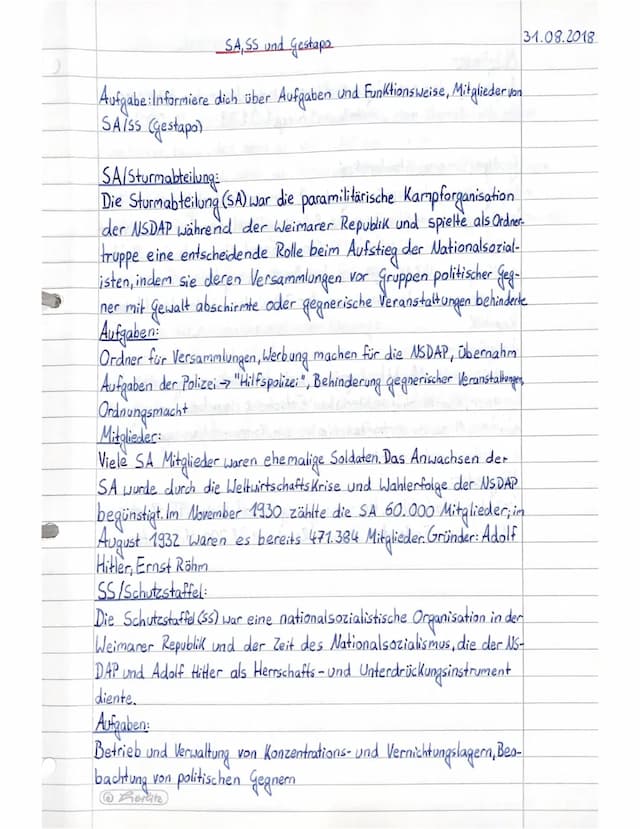 SA,SS und Gestapo
31.08.2018
Aufgabe: Informiere dich über Aufgaben und Funktionsweise, Mitglieder von
SA/SS (Gestapo)
SA/Sturmabteilung:
Die Sturmabteilung (SA) war die paramilitärische Kampforganisation
der NSDAP während der Weimarer Republik und spielte als Ordner-
truppe eine entscheidende Rolle beim Aufstieg der Nationalsozial-
isten, indem sie deren Versammlungen vor Gruppen politischer Geg-
ner mit Gewalt abschirmte oder gegnerische Veranstaltungen behinderte
Aufgaben:
Ordner für Versammlungen, Werbung machen für die NSDAP, übernahm
Aufgaben der Polizei → "Hilfspolizei", Behinderung gegnerischer Veranstaltungen,
Ordnungsmacht
Mitglieder:
Viele SA Mitglieder waren ehemalige Soldaten. Das Anwachsen der
SA wurde durch die Weltwirtschaftskrise und Wahlerfolge der NSDAP
begünstigt. Im November 1930 zählte die SA 60.000 Mitglieder; im
August 1932 waren es bereits 471.384 Mitglieder. Gründer: Adolf
Hitler, Ernst Röhm
SS/Schutzstaffel:
Die Schutzstaffel (SS) war eine nationalsozialistische Organisation in der
Weimarer Republik und der Zeit des Nationalsozialismus, die der NS-
DAP und Adolf Hitler als Herrschafts- und Unterdrückungsinstrument
diente.
Aufgaben:
Betrieb und Verwaltung von Konzentrations- und Vernichtungslagern, Beo-
bachtung von politischen Gegnern